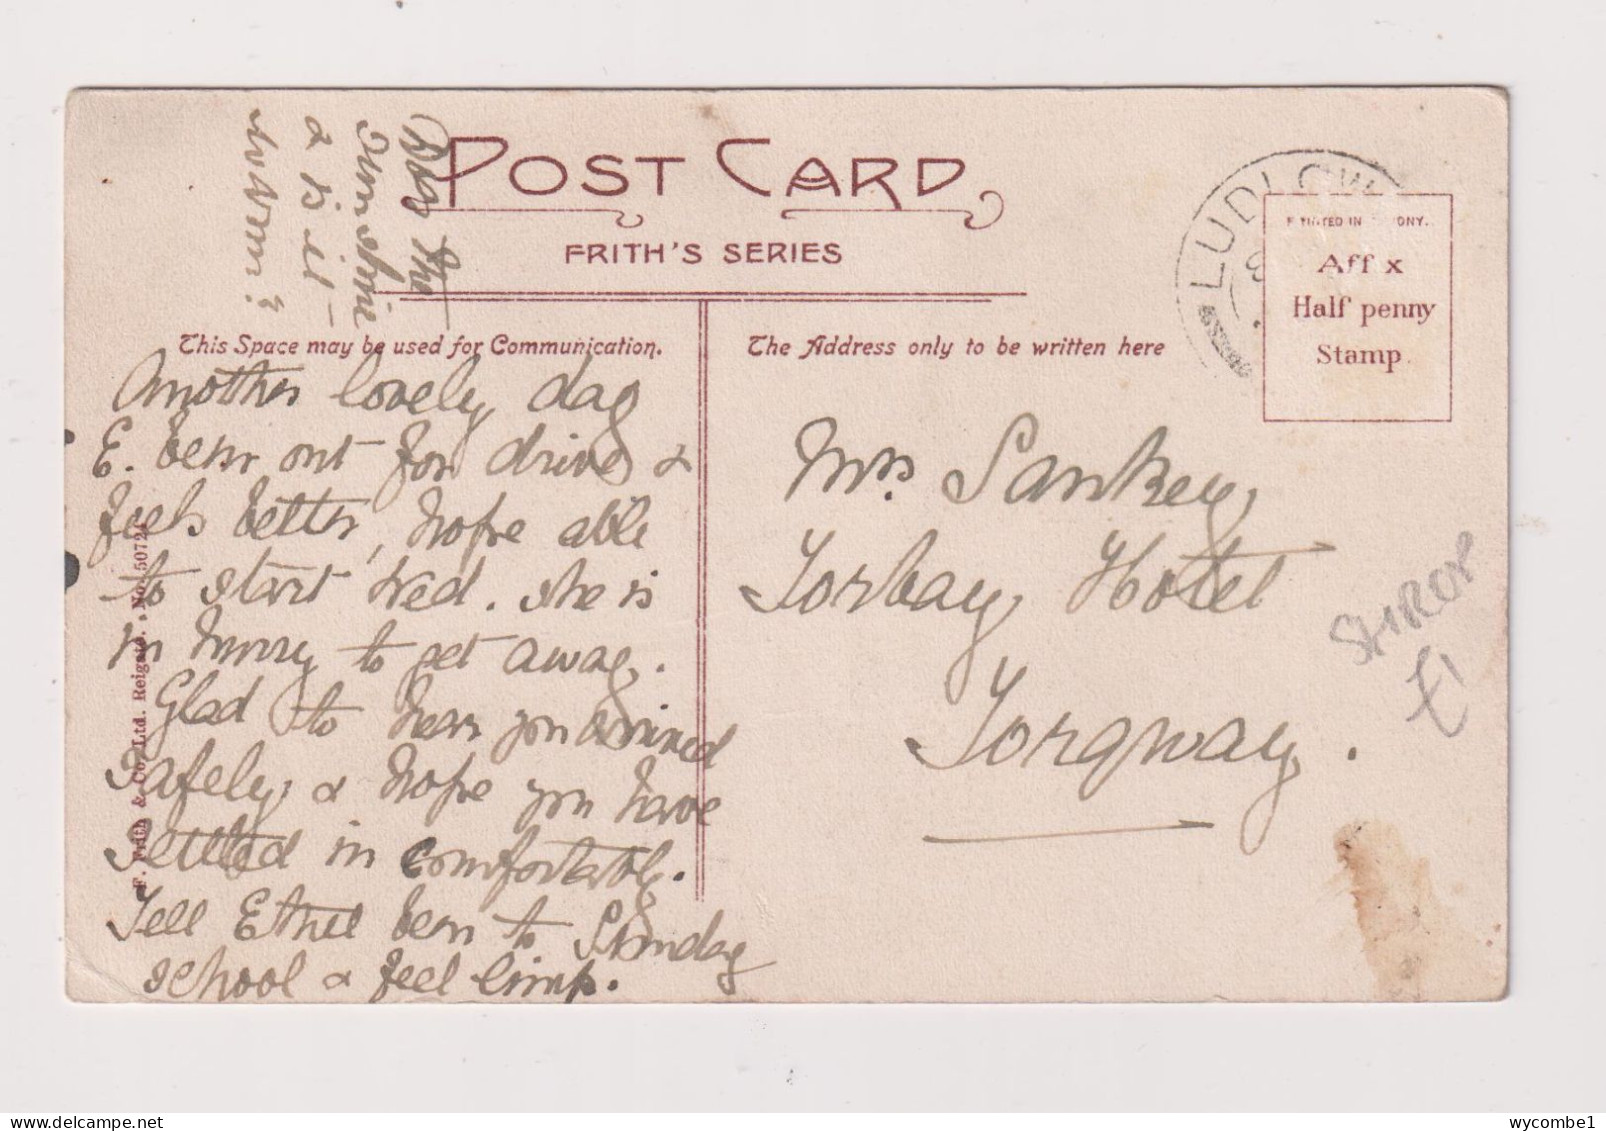 POST CARD
FRITH'S SERIES
This Space may be used for Communication.
The Address only to be written here
LUDLOW
PRINTED IN SAXONY.
Affix
Half penny
Stamp.
Another lovely day
E. been out for drive &
feels better, hope able
to start Wed. she is
in hurry to get away.
Glad to hear you arrived
safely & hope you have
settled in comfortably.
Tell Ethel been to Sunday
school & feel limp.
Does the
sun shine
& is it
warm?
Mrs. Sankey,
Torbay Hotel
Torquay.
SHROP
£1
F. Frith & Co. Ltd. Reigate. No. 50724
wycombe1